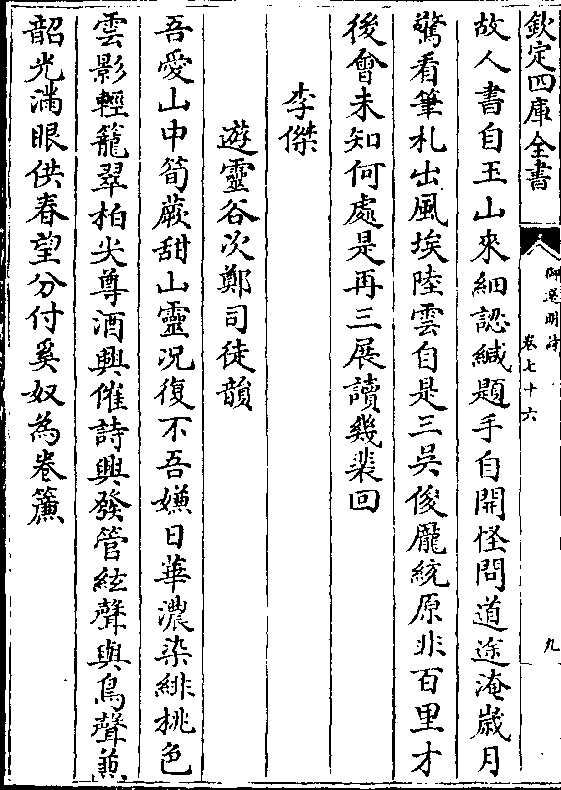 欽定四庫全書
御選明詩
卷七十六
九
故人書自玉山來細認緘題手自開怪問道途淹歲月
驚看筆札出風埃陸雲自是三吳俊龐統原非百里才
後會未知何處是再三展讀幾裴回
李傑
遊靈谷次鄭司徒韻
吾愛山中筍蕨甜山靈況復不吾嫌日華濃染緋桃色
雲影輕籠翠柏尖尊酒興催詩興發管絃聲與鳥聲兼
韶光滿眼供春望分付奚奴為卷簾